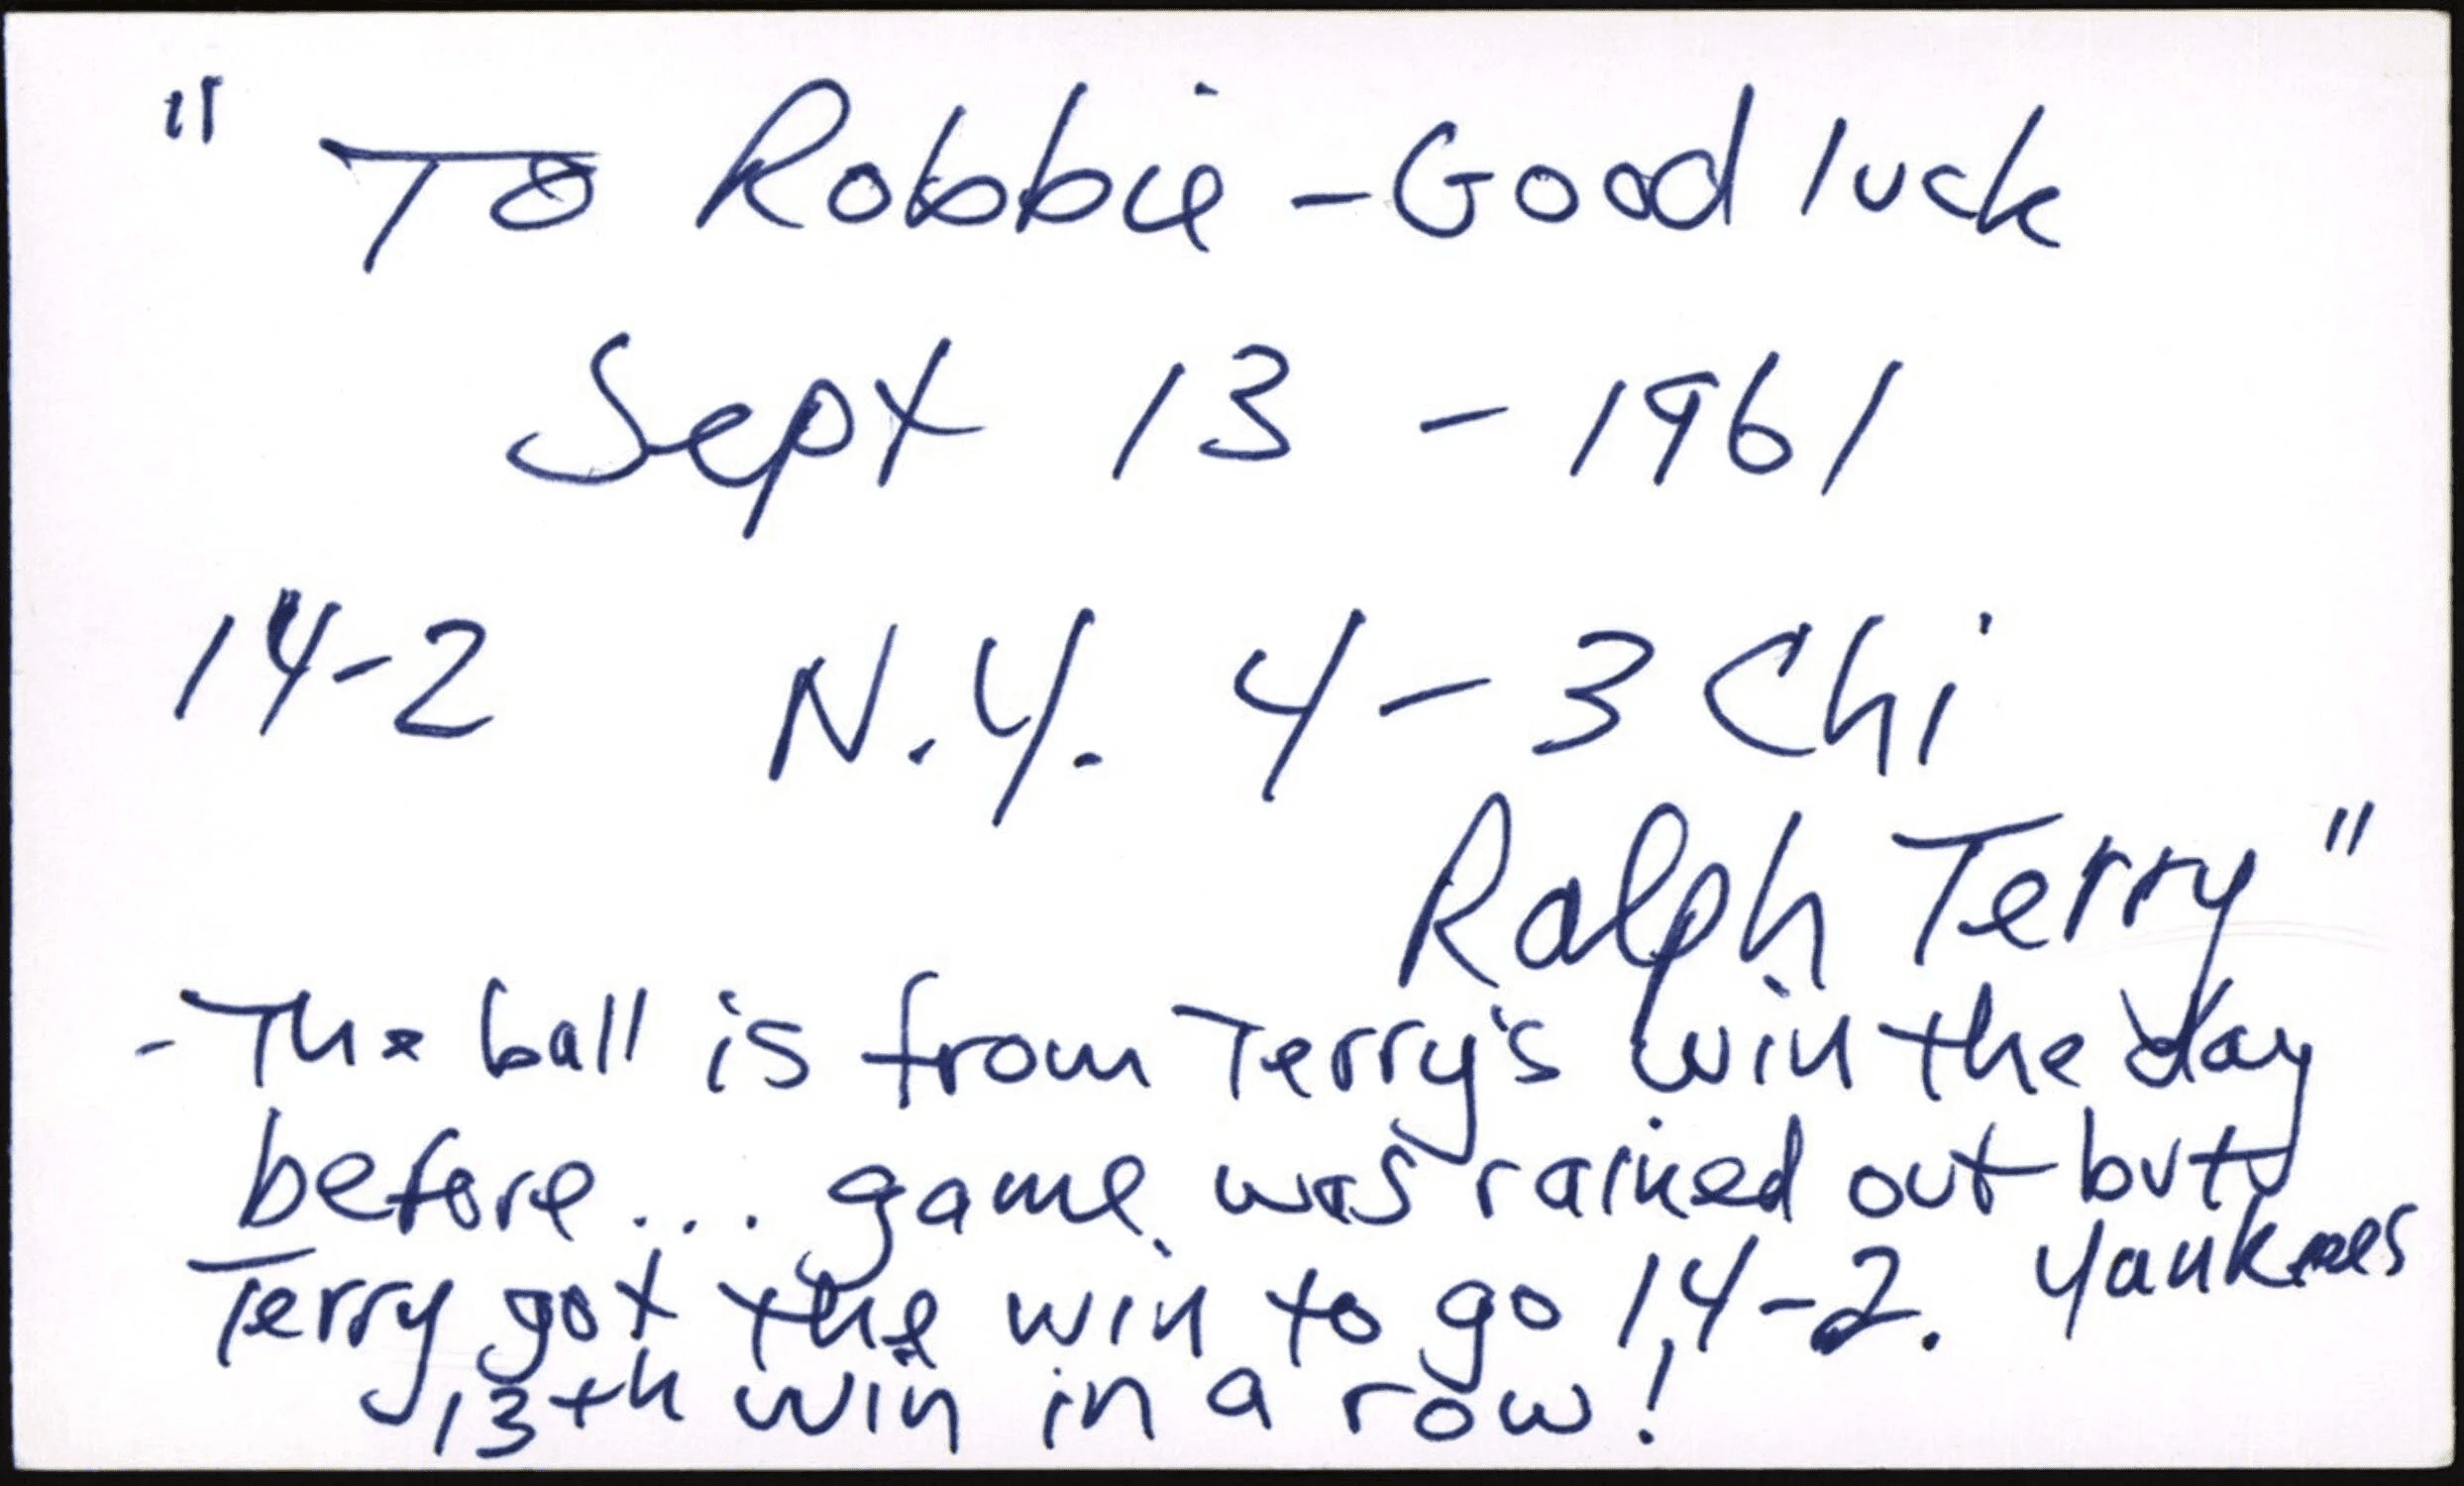 " To Robbie - Good luck
Sept 13 - 1961
14-2 N.Y. 4 - 3 Chi
Ralph Terry "
- The ball is from Terry's win the day
before... game was rained out but
Terry got the win to go 14-2. Yankees
13th win in a row!